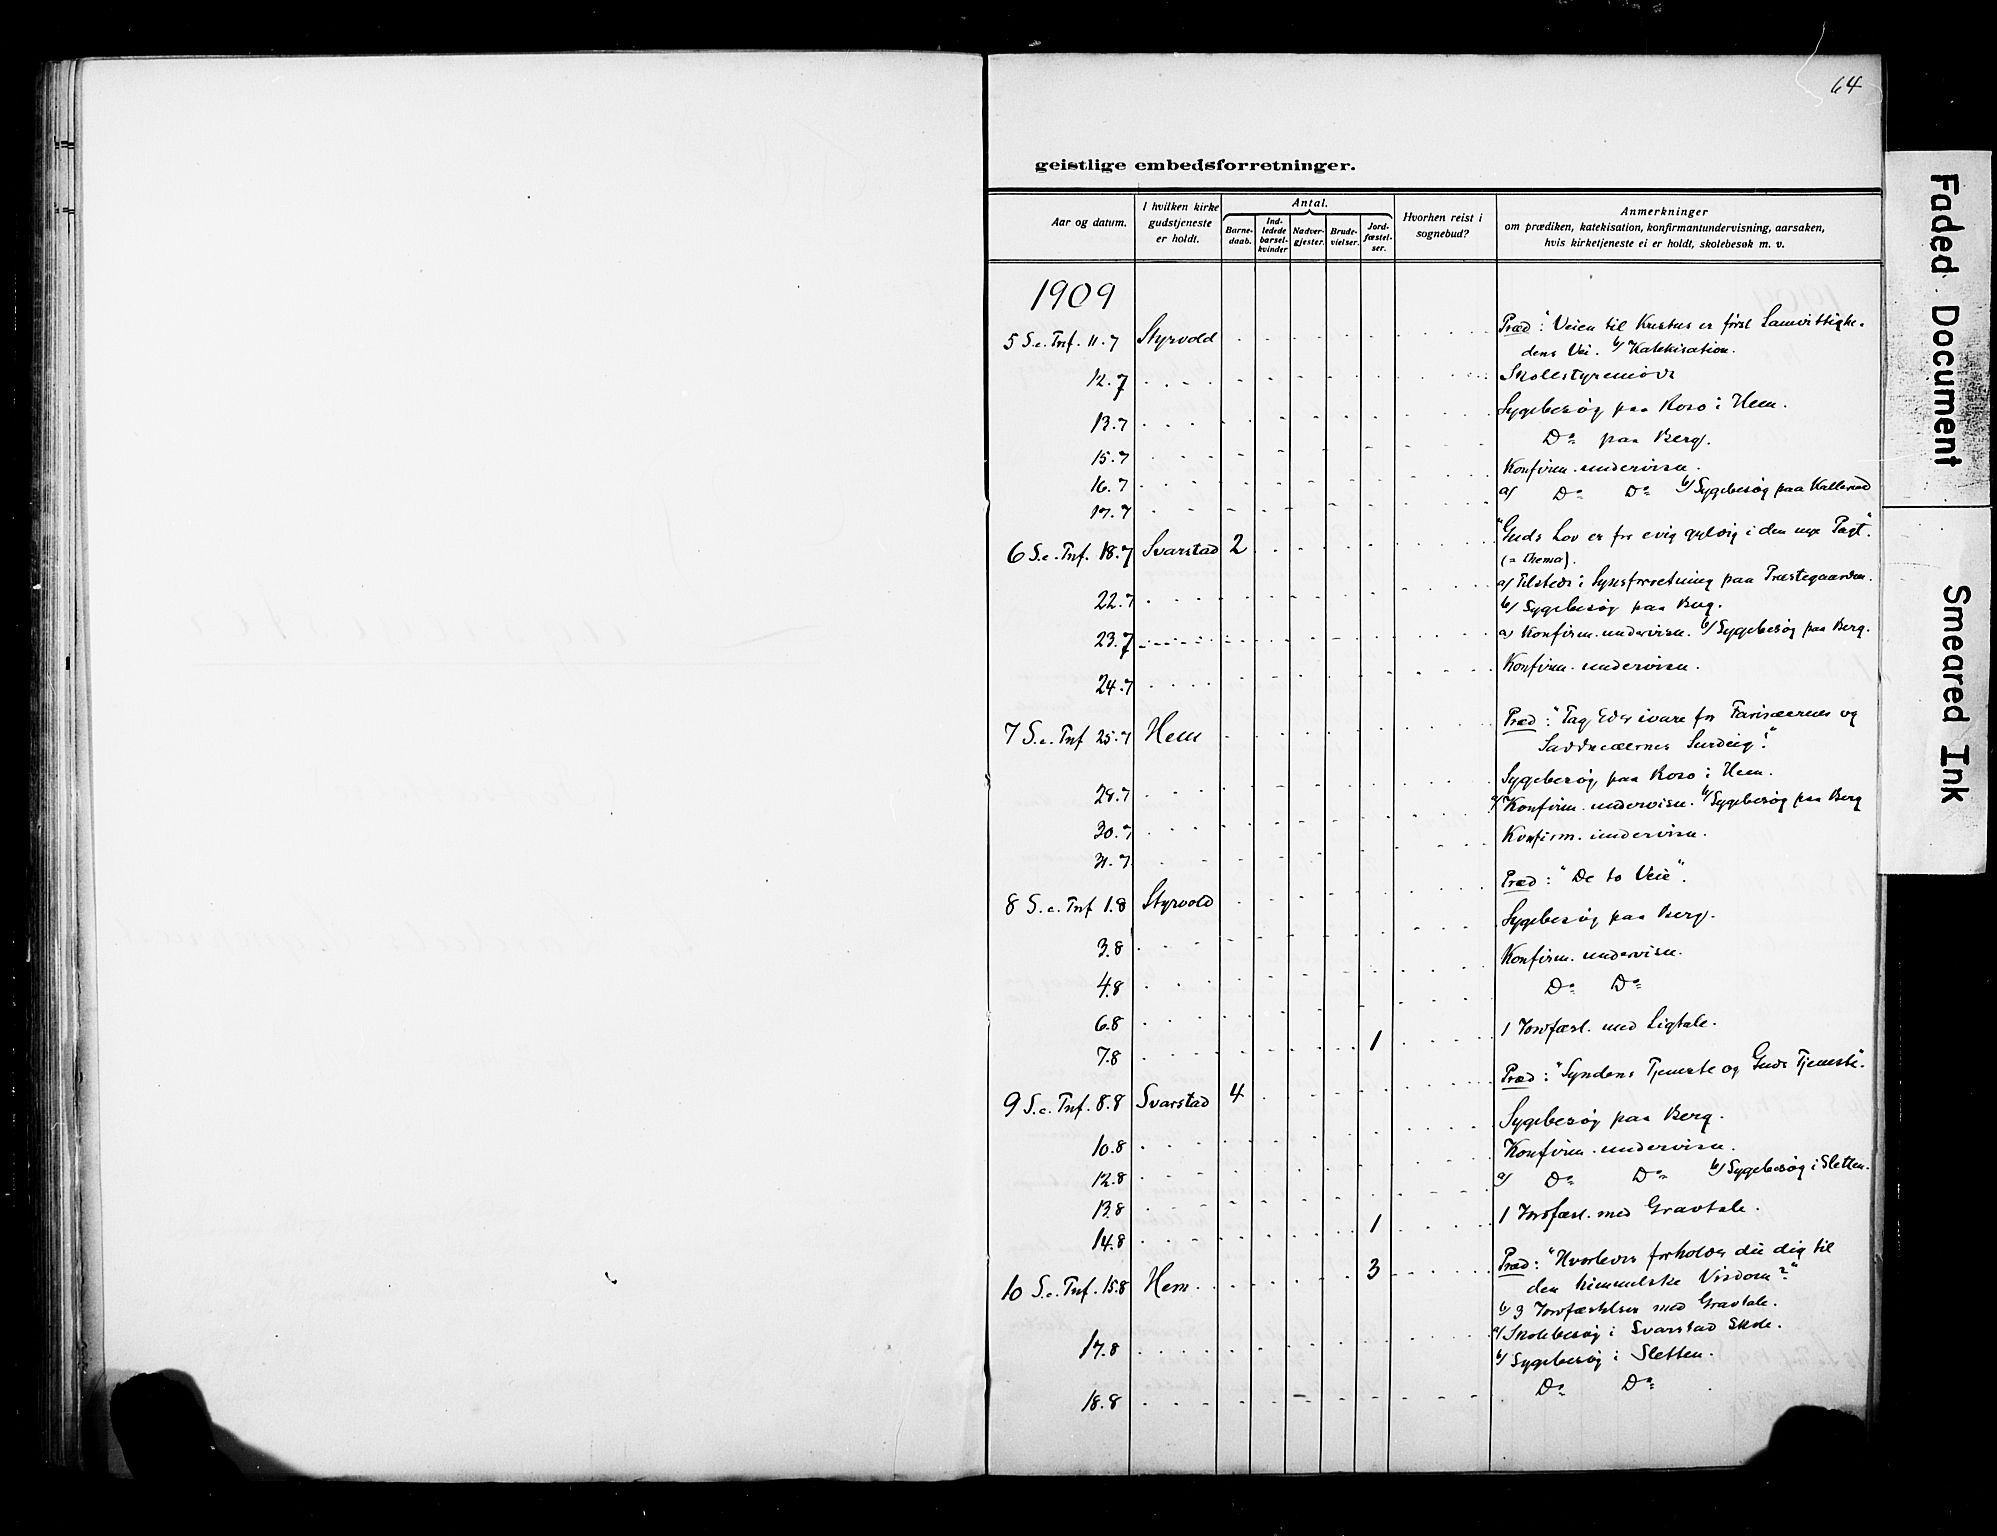 64
geistlige embedsforretninger.
Aar og datum.
I hvilken kirke gudstjeneste er holdt.
Antal.
Barne-daab.
Ind-ledede barsel-kvinder
Nadver-gjester.
Brude-vielser.
Jord-fæstel-ser.
Hvorhen reist i sognebud?
Anmerkninger
om prædiken, katekisation, konfirmantundervisning, aarsaken,
hvis kirketjeneste ei er holdt, skolebesøk m. v.
1909
5 S.e. Tnf. 11.7 Styrvold Præd: "Veien til Kristus er først Samvittighe-
dens Vei. b/ Katekisation.
12.7 Skolestyremøde
13.7 Sygebesøg paa Roso i Hem.
15.7 Do paa Berg.
16.7 Konfirm. undervisn.
17.7 a/ Do Do b/ Sygebesøg paa
6 S.e. Tnf. 18.7 Svarstad 2 "Guds Lov er for evig gyldig i den nye Pagt".
(= Thema).
22.7 a/ Tilstede i Synsforretning paa Præstegaarden.
b/ Sygebesøg paa Berg.
23.7 a) Konfirm. undervisn. b/ Sygebesøg paa Berg.
24.7 Konfirm. undervisn.
7 S.e. Tnf 25.7 Hem Præd: "Tag Eder ivare for Farisæernes og
Sadducæernes Surdeig!"
28.7 Sygebesøg paa Roso i Hem.
30.7 a/ Konfirm. undervisn. b/ Sygebesøg paa Berg
31.7 Konfirm. undervisn.
8 S.e. Tnf 1.8 Styrvold Præd: "De to Veie".
3.8 Sygebesøg paa Berg.
4.8 Konfirm. undervisn.
6.8 Do Do
7.8 1 1 Jordfæst. med Ligtale.
9 S.e. Tnf. 8.8 Svarstad 4 Præd: "Syndens Tjeneste og Guds Tjeneste".
10.8 Sygebesøg paa Berg.
12.8 Konfirm. undervisn.
13.8 a/ Do Do b/ Sygebesøg i Sletten.
14.8 1 1 Jordfæst. med Gravtale.
10 S.e. Tnf. 15.8 Hem 3 Præd: "Hvorledes forholder du dig til
den himmelske Visdom?"
b/ 3 Jordfæstelser med Gravtale.
17.8 a/ Skolebesøg i Svarstad Skole.
b/ Sygebesøg i Sletten.
18.8 Do Do
Faded Document
Smeared Ink